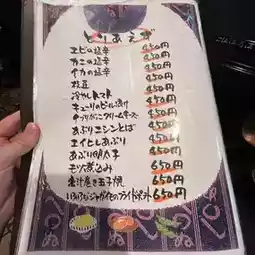 とりあえず
エビの塩辛 450円
カニの塩辛 450円
イカの塩辛 450円
枝豆 450円
冷やしトマト 450円
キューリのビール漬け 450円
クリームチーズ 450円
あぶりエシンとば 450円
エイヒレあぶり 450円
あぶり明太子 450円
モツ煮込み 650円
出汁巻き玉子焼 650円
ジャガイモのフライドポテト 650円